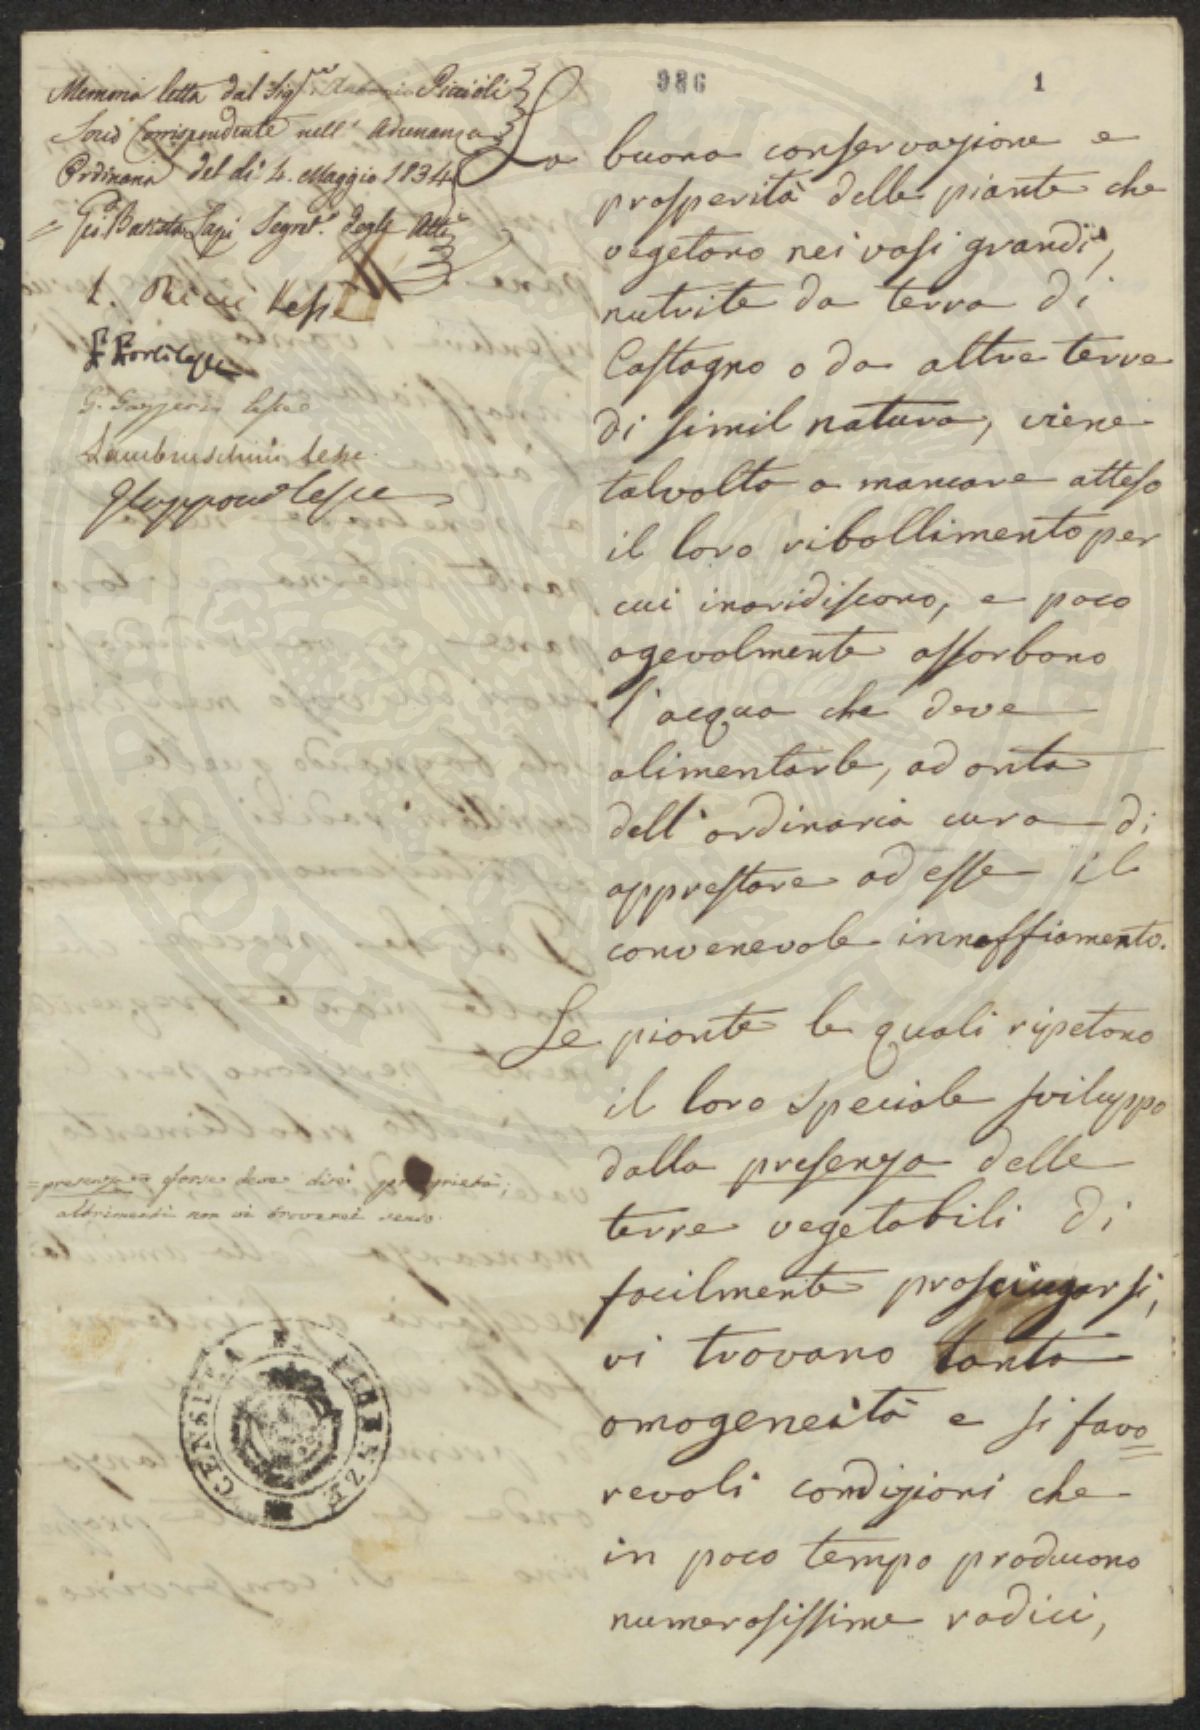 986
1
Memoria letta dal Sig.re Antonio Piccioli
Socio Corrispondente nell' Adunanza
Ordinaria del dì 4. Maggio 1834
= Gio: Batista Lapi Segret.o degli Atti
L. Ricci Lesse
Lambruschini lesse
La buona conservazione e
prosperità delle piante che
vegetano nei vasi grandi,
nutrite da terra di
Castagno o da altre terre
di simil natura, viene
talvolta a mancare atteso
il loro ribollimento per
cui inaridiscono, e poco
agevolmente assorbono
l'acqua che deve
alimentarle, ad onta
dell' ordinaria cura di
apprestare ad esse il
convenevole innaffiamento.
Le piante le quali ripetono
il loro speciale sviluppo
dalla presenza delle
terre vegetabili di
facilmente prosciugarsi,
vi trovano tanta
omogeneità e sì favo=
revoli condizioni che
in poco tempo producono
numerosissime radici,
= presenza = forse deve dirsi proprietà;
altrimenti non vi troverei senso.
CENSURA R. FIRENZE